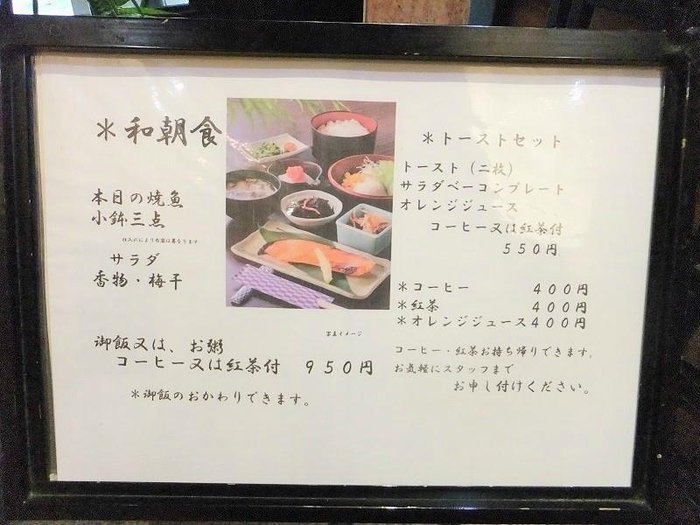 ＊和朝食
本日の焼魚
小鉢三点
仕入れにより内容は異なります
サラダ
香物・梅干
写真イメージ
御飯又は、お粥
コーヒー又は紅茶付 ９５０円
＊御飯のおかわりできます。
＊トーストセット
トースト（二枚）
サラダベーコンプレート
オレンジジュース
コーヒー又は紅茶付
５５０円
＊コーヒー ４００円
＊紅茶 ４００円
＊オレンジジュース４００円
コーヒー・紅茶お持ち帰りできます。
お気軽にスタッフまで
お申し付けください。